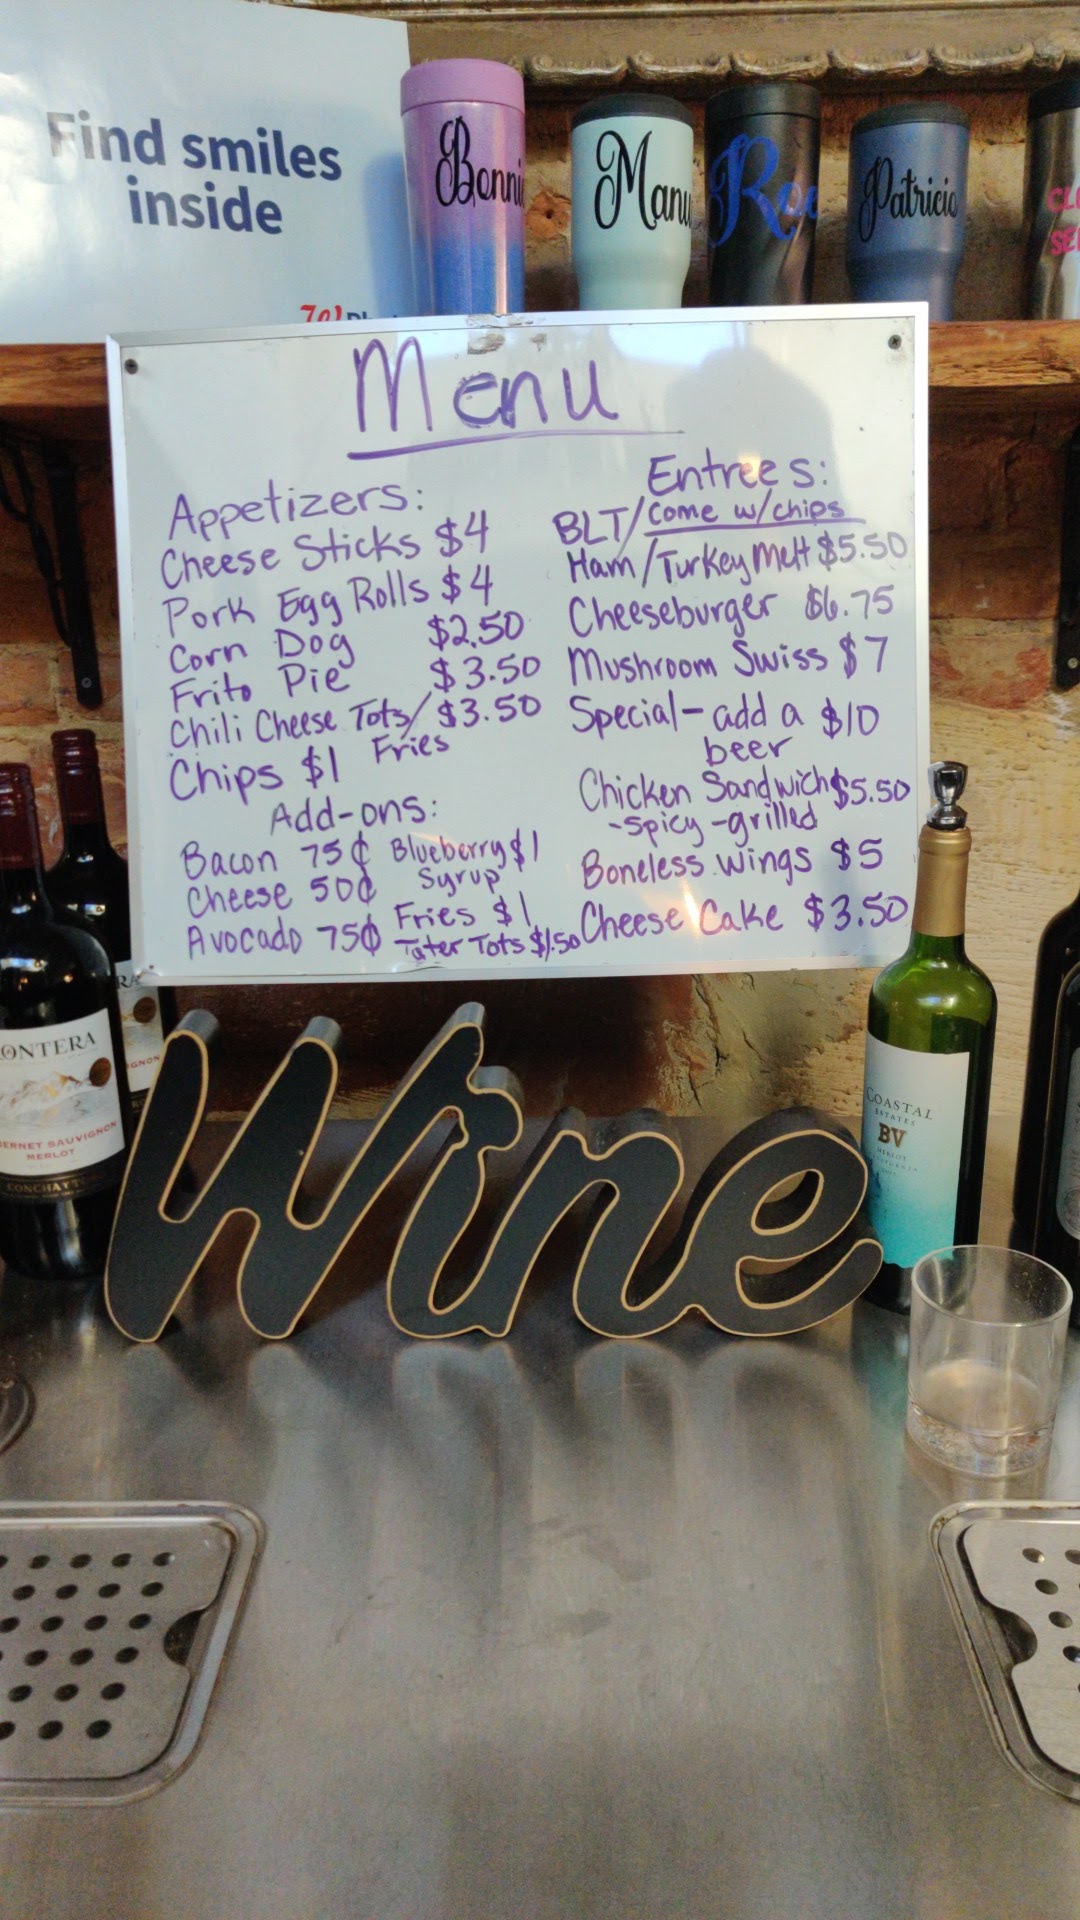 Find smiles
inside
Bonni
Manu
Patricia
Menu
Appetizers:
Cheese Sticks $4
Pork Egg Rolls $4
Corn Dog $2.50
Frito Pie $3.50
Chili Cheese Tots/ $3.50
Fries
Chips $1
Add-ons:
Bacon 75¢
Cheese 50¢
Avocado 75¢
Blueberry $1
Syrup
Fries $1
Tater Tots $1.50
Entrees:
come w/chips
BLT/
Ham/Turkey Melt $5.50
Cheeseburger $6.75
Mushroom Swiss $7
Special - add a $10
beer
Chicken Sandwich $5.50
-spicy -grilled
Boneless wings $5
Cheese Cake $3.50
Wine
RONTERA
ERNET SAUVIGNON
MERLOT
CONCHA Y T
GNON
COASTAL
ESTATES
BV
MERLOT